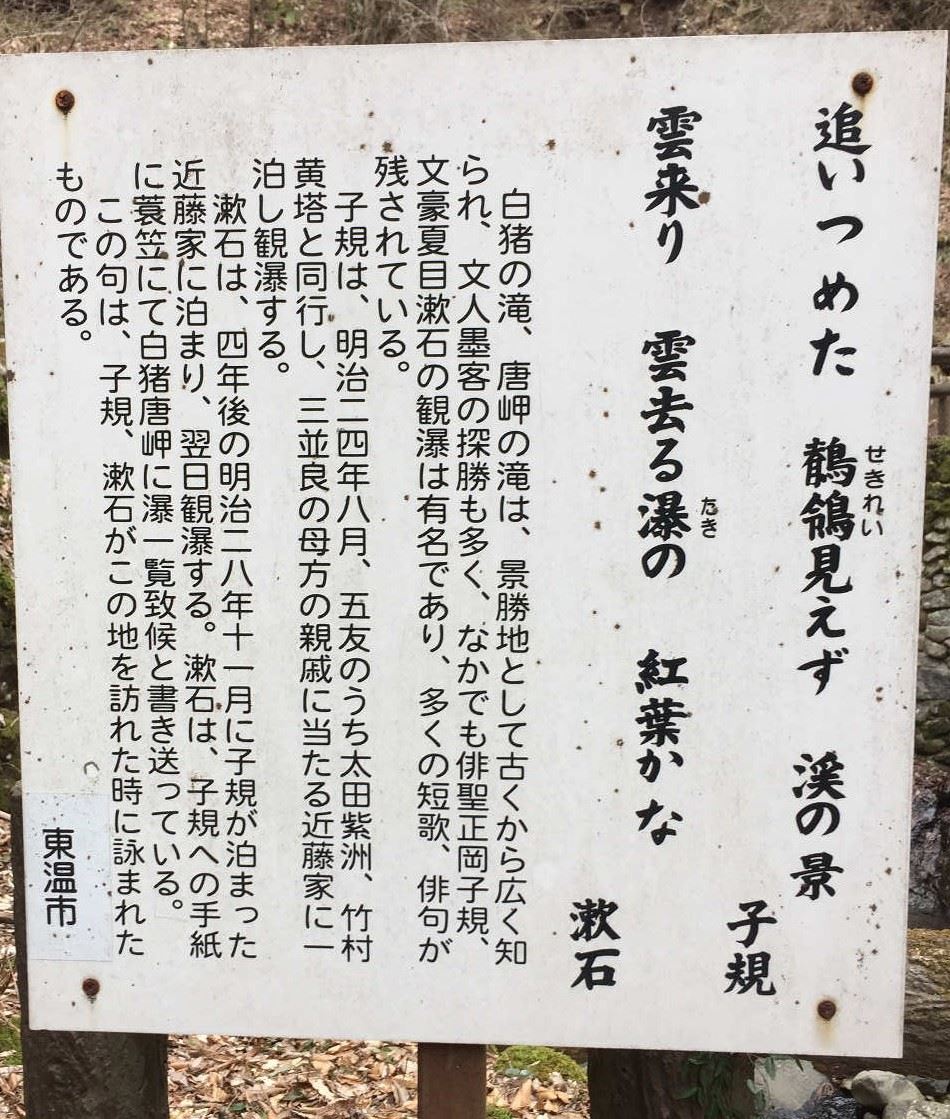 追いつめた 鶺鴒見えず 渓の景
せきれい
子規
雲来り 雲去る瀑の 紅葉かな
たき
漱石
白猪の滝、唐岬の滝は、景勝地として古くから広く知
られ、文人墨客の探勝も多く、なかでも俳聖正岡子規、
文豪夏目漱石の観瀑は有名であり、多くの短歌、俳句が
残されている。
子規は、明治二四年八月、五友のうち太田紫洲、竹村
黄塔と同行し、三並良の母方の親戚に当たる近藤家に一
泊し観瀑する。
漱石は、四年後の明治二八年十一月に子規が泊まった
近藤家に泊まり、翌日観瀑する。漱石は、子規への手紙
に蓑笠にて白猪唐岬に瀑一覧致候と書き送っている。
この句は、子規、漱石がこの地を訪れた時に詠まれた
ものである。
東温市